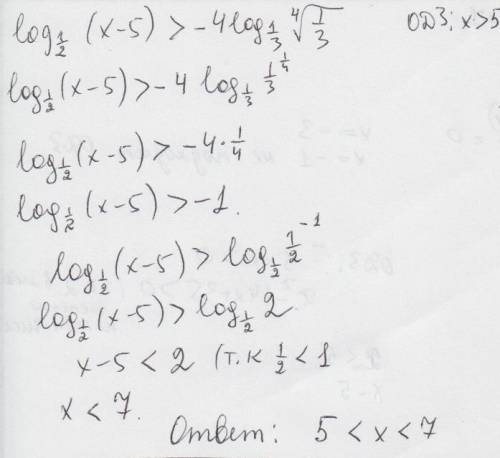 log_{1/2} (x-5) > -4 log_{1/3} ⁴√(1/3) ОДЗ: x>5
log_{1/2} (x-5) > -4 log_{1/3} 1/3^{1/4}
log_{1/2} (x-5) > -4 · 1/4
log_{1/2} (x-5) > -1.
log_{1/2} (x-5) > log_{1/2} 1/2^{-1}
log_{1/2} (x-5) > log_{1/2} 2
x-5 < 2 (т.к 1/2 < 1
x < 7.
Ответ: 5 < x < 7